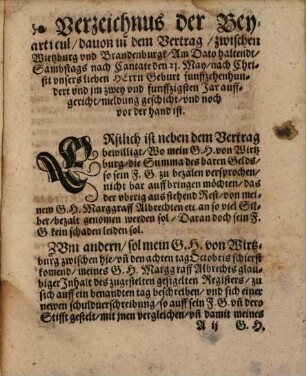 Verzeichnus der Bey-
articul / dauon in dem Vertrag / zwischen
Wirtzburg vnd Brandenburgk / Am Dato haltendt /
Sambstags nach Cantate den 21. May / nach Chri-
sti vnsers lieben HErrn Geburt funffzehenhun-
dert vnd jm zwey vnd funffzigsten Jar auff-
gericht / meldung geschicht / vnd noch
vor der hand ist.
ERstlich ist neben dem Vertrag
bewilligt / Wo mein G.H. von Wirtz
burg / die Summa des baren Gelds /
so sein F. G. zu bezalen versprochen /
nicht bar auff bringen möchten / das
der vbrig ausstehend Rest / von mei
nem G.H. Marggraff Albrechten ꝛc. an so viel Sil-
ber / bezalt genomen werden sol / Daran doch sein F.
G kein schaden leiden sol.
ZVm andern / sol mein G. H. von Wirtz-
burg zwischen hie / vñ den achten tag Octobris schierst
komend / meines G. H. Marggraff Albrechts glau-
biger Inhalt des zugestelten gesigelten Registers / zu
sich auff ein benandten tag beschreiben / vnd sich einer
newen schuldtuerschreibung / so auff sein F. G vñ dero
Stifft gestelt / mit jnen vergleichen / vñ damit meines
A ij G. H.